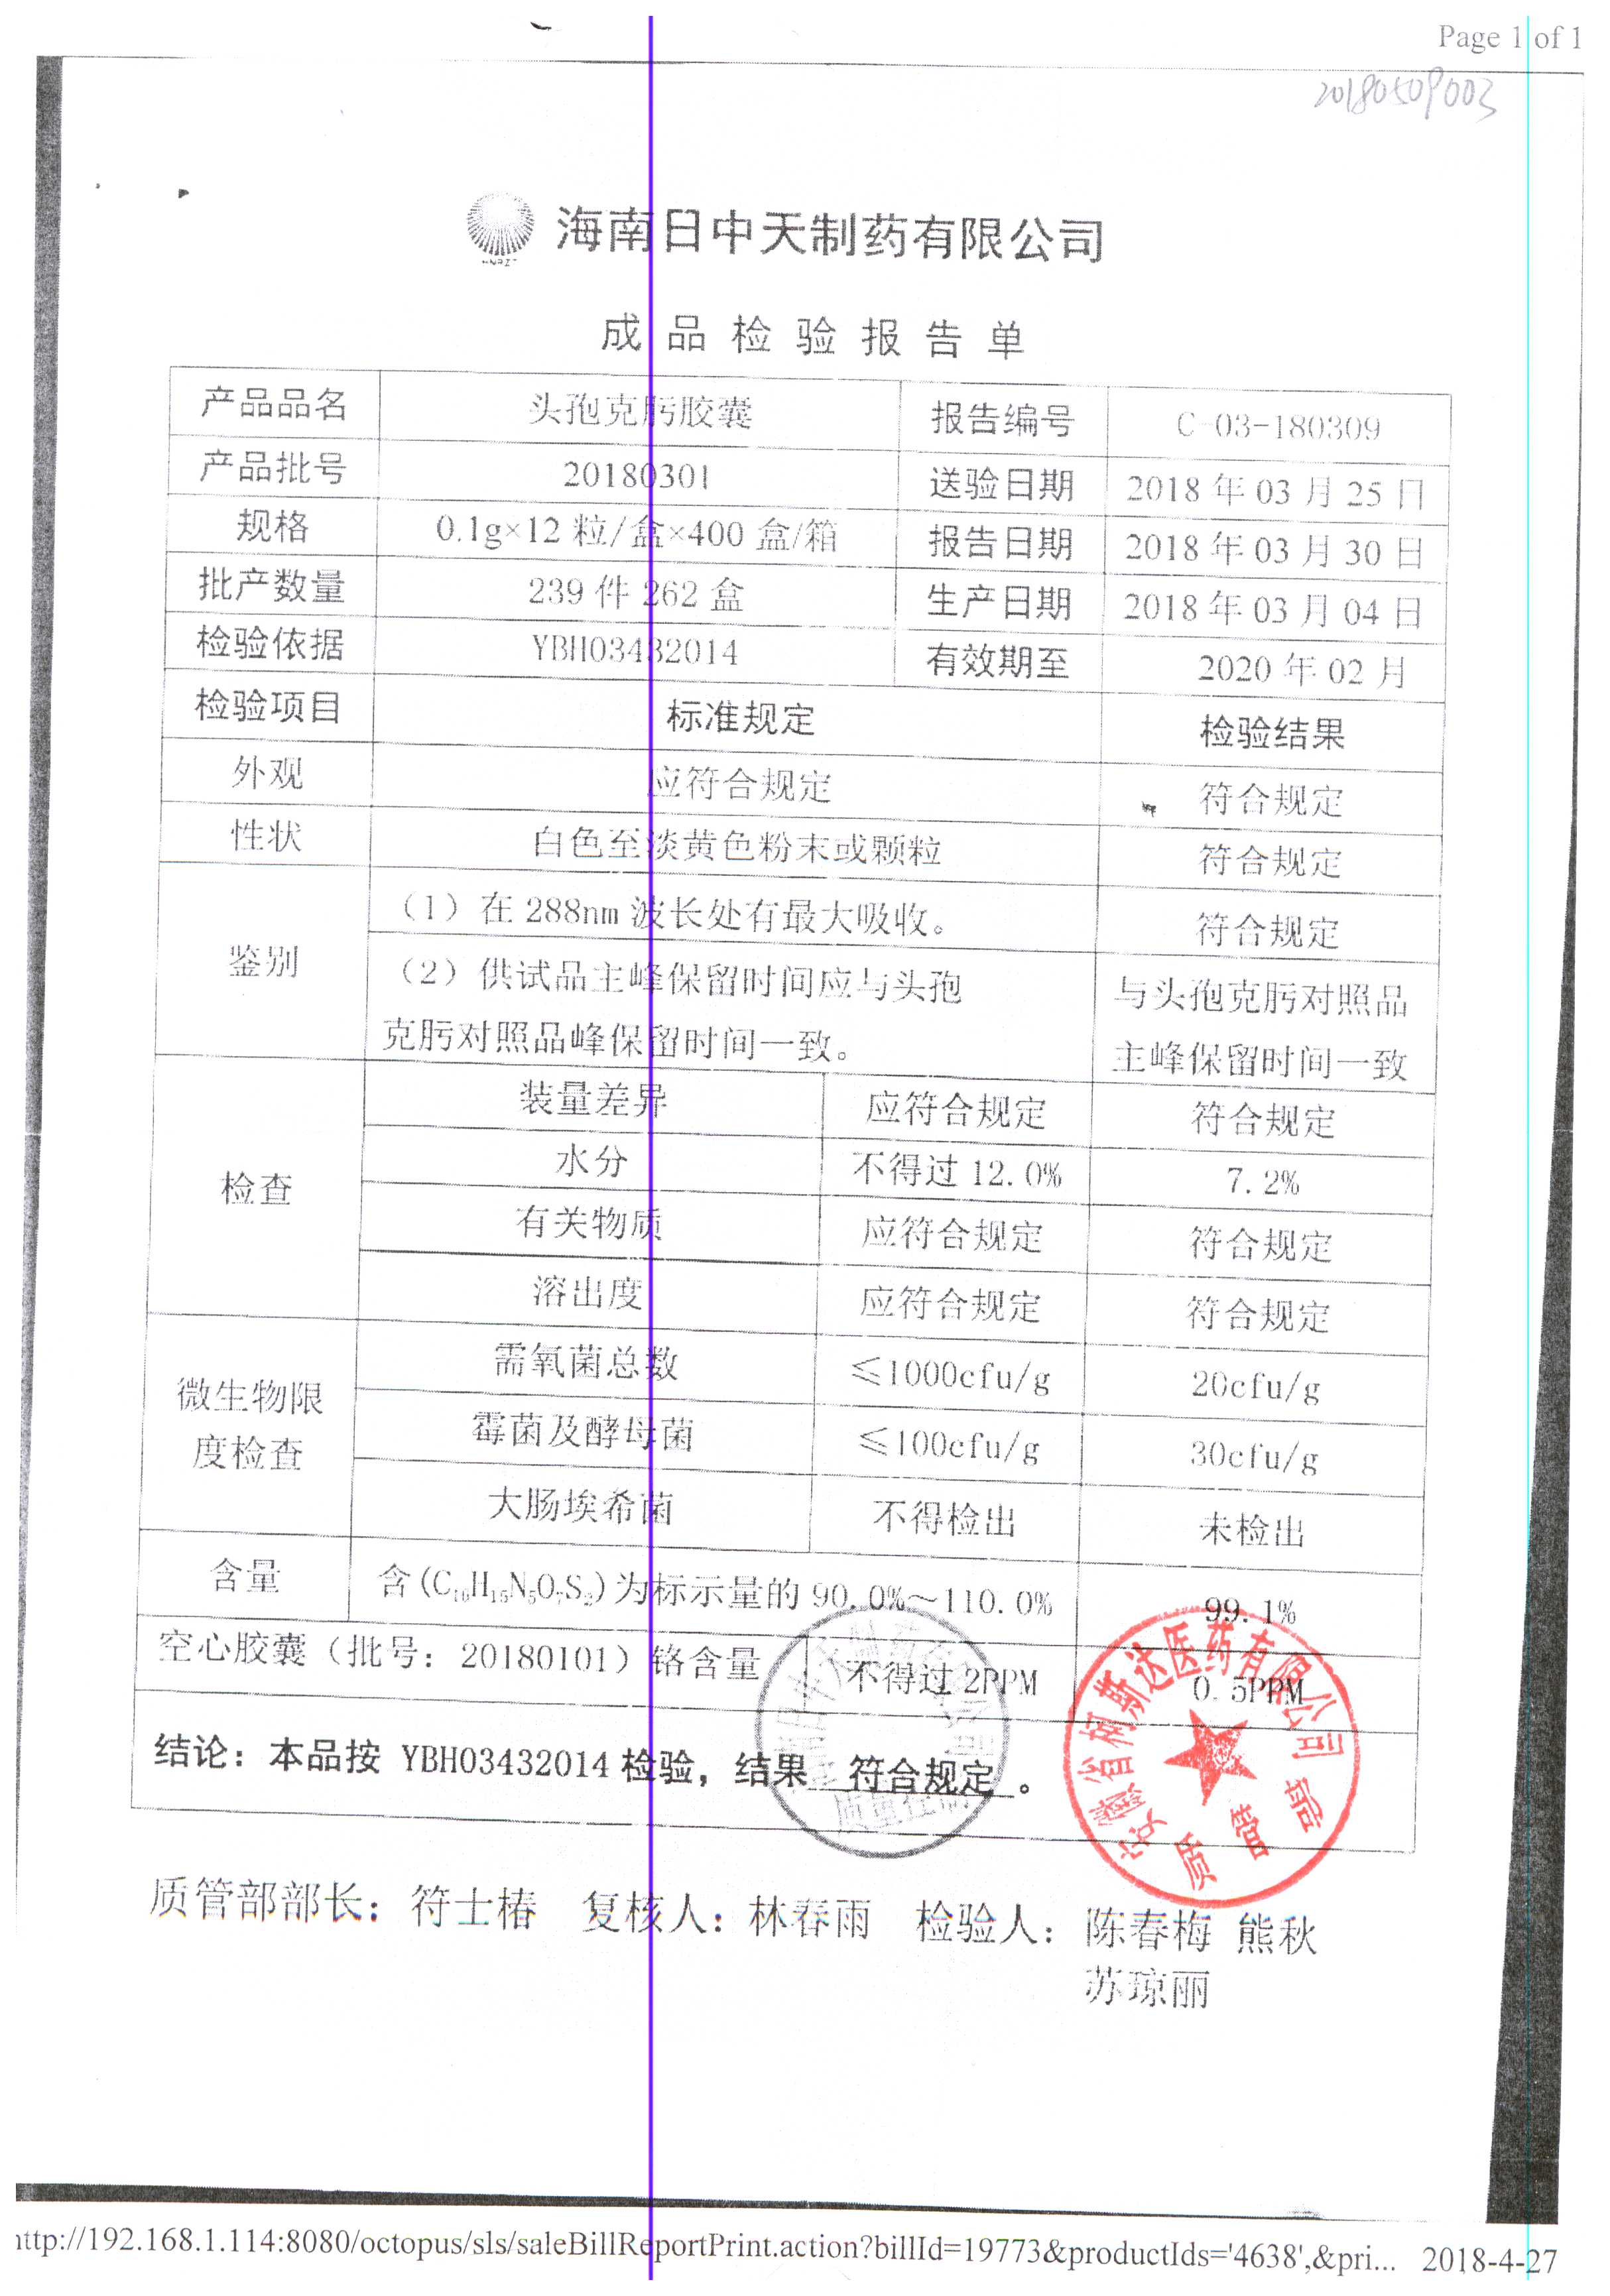 Page 1 of 1
20180509003
海南日中天制药有限公司
成品检验报告单
产品品名 头孢克肟胶囊 报告编号 C-03-180309
产品批号 20180301 送验日期 2018年03月25日
规格 0.1g×12粒/盒×400盒/箱 报告日期 2018年03月30日
批产数量 239件262盒 生产日期 2018年03月04日
检验依据 YBH03432014 有效期至 2020年02月
检验项目 标准规定 检验结果
外观 应符合规定 符合规定
性状 白色至淡黄色粉末或颗粒 符合规定
鉴别 （1）在288nm波长处有最大吸收。 符合规定
（2）供试品主峰保留时间应与头孢 与头孢克肟对照品
克肟对照品峰保留时间一致。 主峰保留时间一致
检查 装量差异 应符合规定 符合规定
水分 不得过12.0% 7.2%
有关物质 应符合规定 符合规定
溶出度 应符合规定 符合规定
微生物限 需氧菌总数 ≤1000cfu/g 20cfu/g
度检查 霉菌及酵母菌 ≤100cfu/g 30cfu/g
大肠埃希菌 不得检出 未检出
含量 含(C₁₆H₁₅N₅O₇S₂)为标示量的90.0%～110.0% 99.1%
空心胶囊（批号：20180101）铬含量 不得过2PPM 0.5PPM
结论：本品按 YBH03432014 检验，结果 符合规定。
安徽省柯斯达医药有限公司
质管部
质管部部长：符士椿 复核人：林春雨 检验人：陈春梅 熊秋
苏琼丽
http://192.168.1.114:8080/octopus/sls/saleBillReportPrint.action?billId=19773&productIds='4638',&pri... 2018-4-27